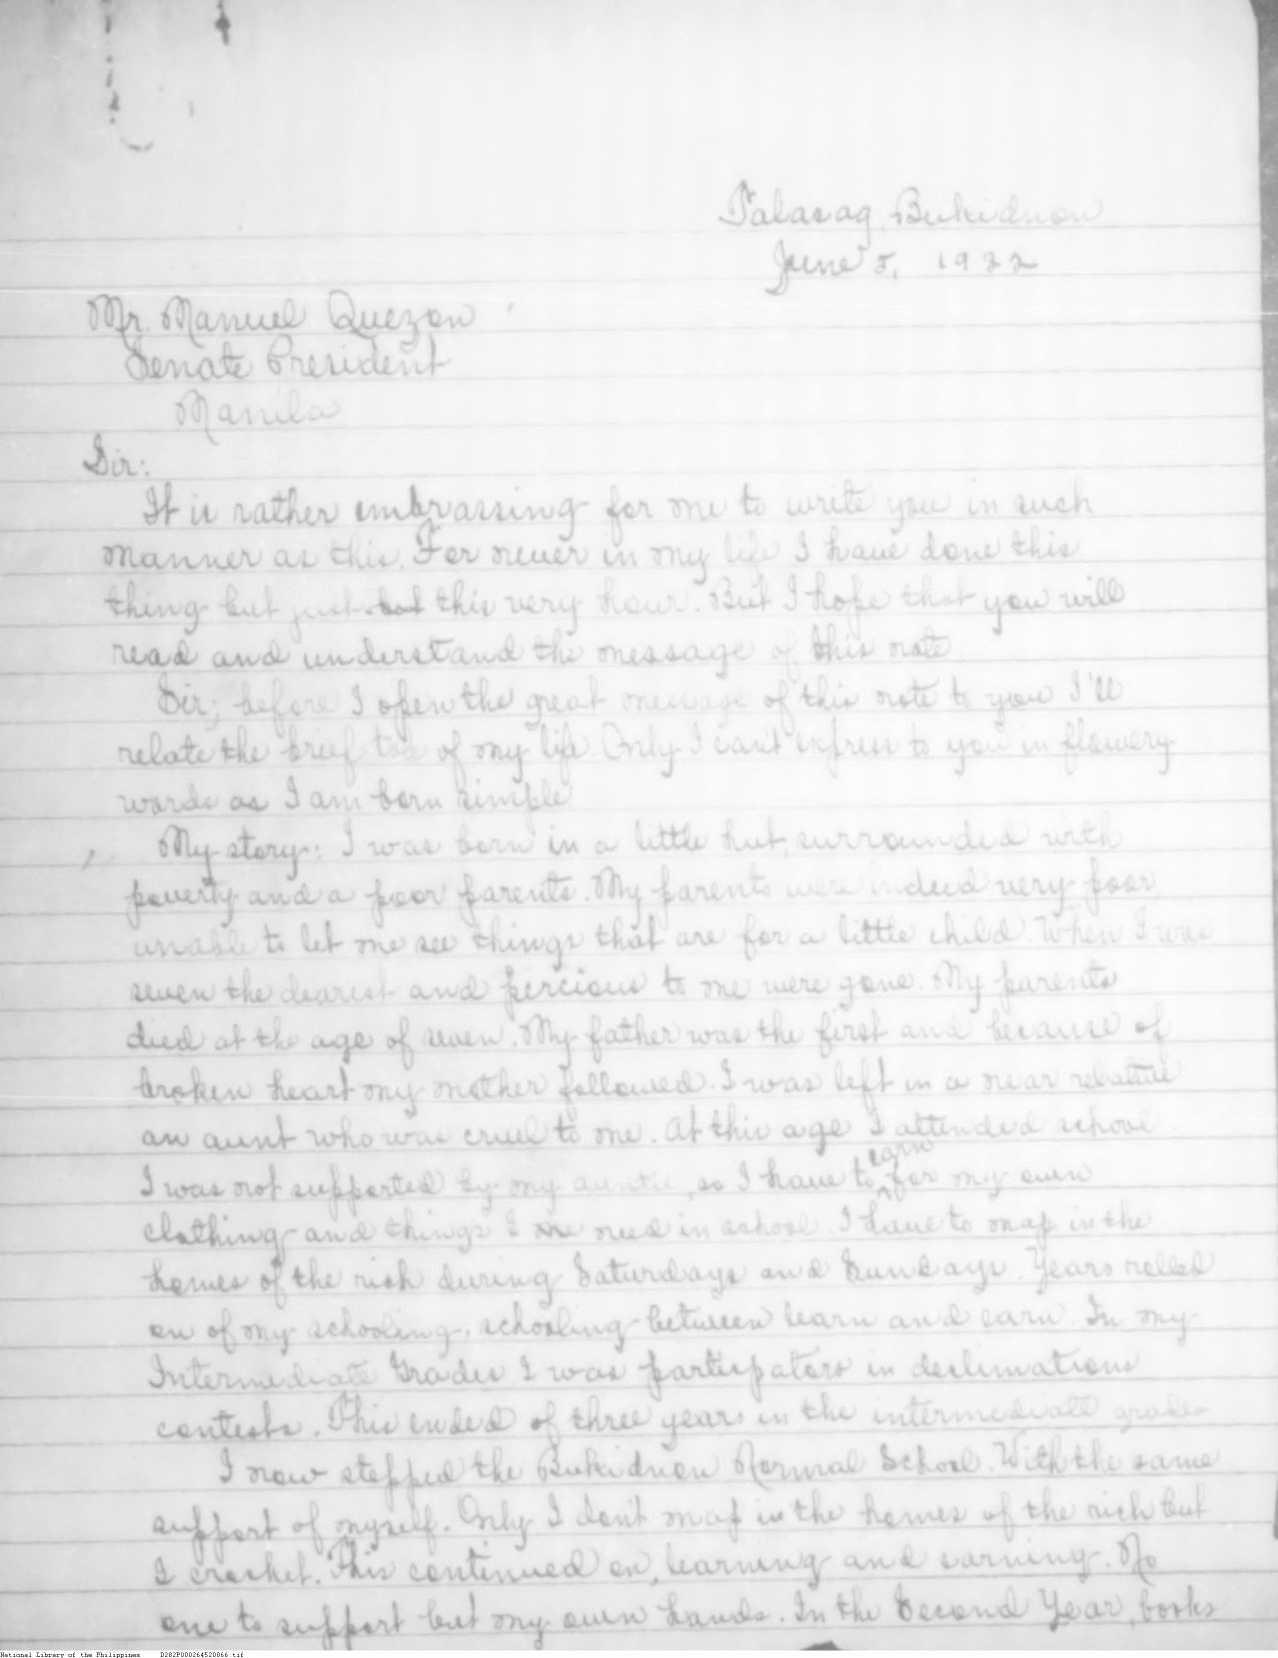 Talacag, Bukidnon
June 5, 1922
Mr. Manuel Quezon
Senate President
Manila
Sir:
It is rather embrassing for me to write you in such
manner as this. For never in my life I have done this
thing but just this very hour. But I hope that you will
read and understand the message of this note
Sir; before I open the great message of this note to you I'll
relate the brief of my life. Only I can't express to you in flowery
words as I am born simple
My story: I was born in a little hut, surrounded with
poverty and a poor parents. My parents were indeed very poor
unable to let me see things that are for a little child. When I was
seven the dearest and percious to me were gone. My parents
died at the age of seven. My father was the first and because of
broken heart my mother followed. I was left in a near relative
an aunt who was cruel to me. At this age I attended school.
I was not supported by my auntie, so I have to earn for my own
clothing and things I need in school. I have to mop in the
homes of the rich during Saturdays and Sundays. Years rolled
on of my schooling, schooling between learn and earn. In my
Intermediate Grades I was participators in declimations
contests. This ended of three years in the intermediate grades
I now stepped the Bukidnon Normal School. With the same
support of myself. Only I don't mop in the homes of the rich but
I crochet. This continued on, learning and earning. No
one to support but my own hands. In the Second Year, books
National Library of the Philippines D282P000264520066.tif